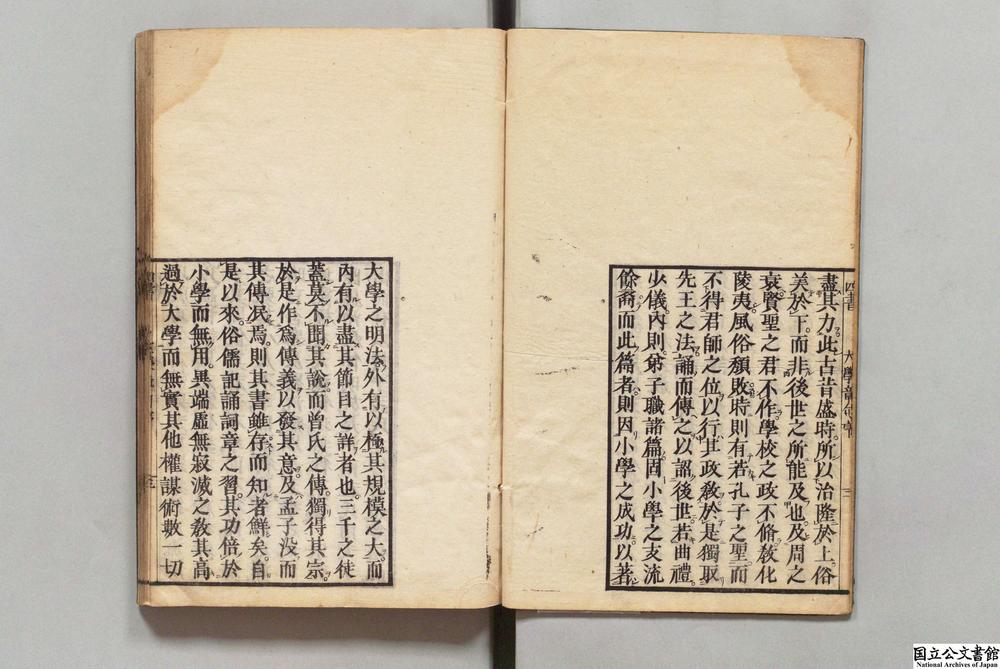 四書　大學章句序　三
盡其力此古昔盛時所以治隆於上俗
美於下而非後世之所能及也及周之
衰賢聖之君不作學校之政不脩敎化
陵夷風俗頽敗時則有若孔子之聖而
不得君師之位以行其政敎於是獨取
先王之法誦而傳之以詔後世若曲禮
少儀內則弟子職諸篇固小學之支流
餘裔而此篇者則因小學之成功以著
大學之明法外有以極其規模之大而
內有以盡其節目之詳者也三千之徒
蓋莫不聞其說而曾氏之傳獨得其宗
於是作爲傳義以發其意及孟子没而
其傳泯焉則其書雖存而知者鮮矣自
是以來俗儒記誦詞章之習其功倍於
小學而無用異端虛無寂滅之敎其高
過於大學而無實其他權謀術數一切
国立公文書館
National Archives of Japan